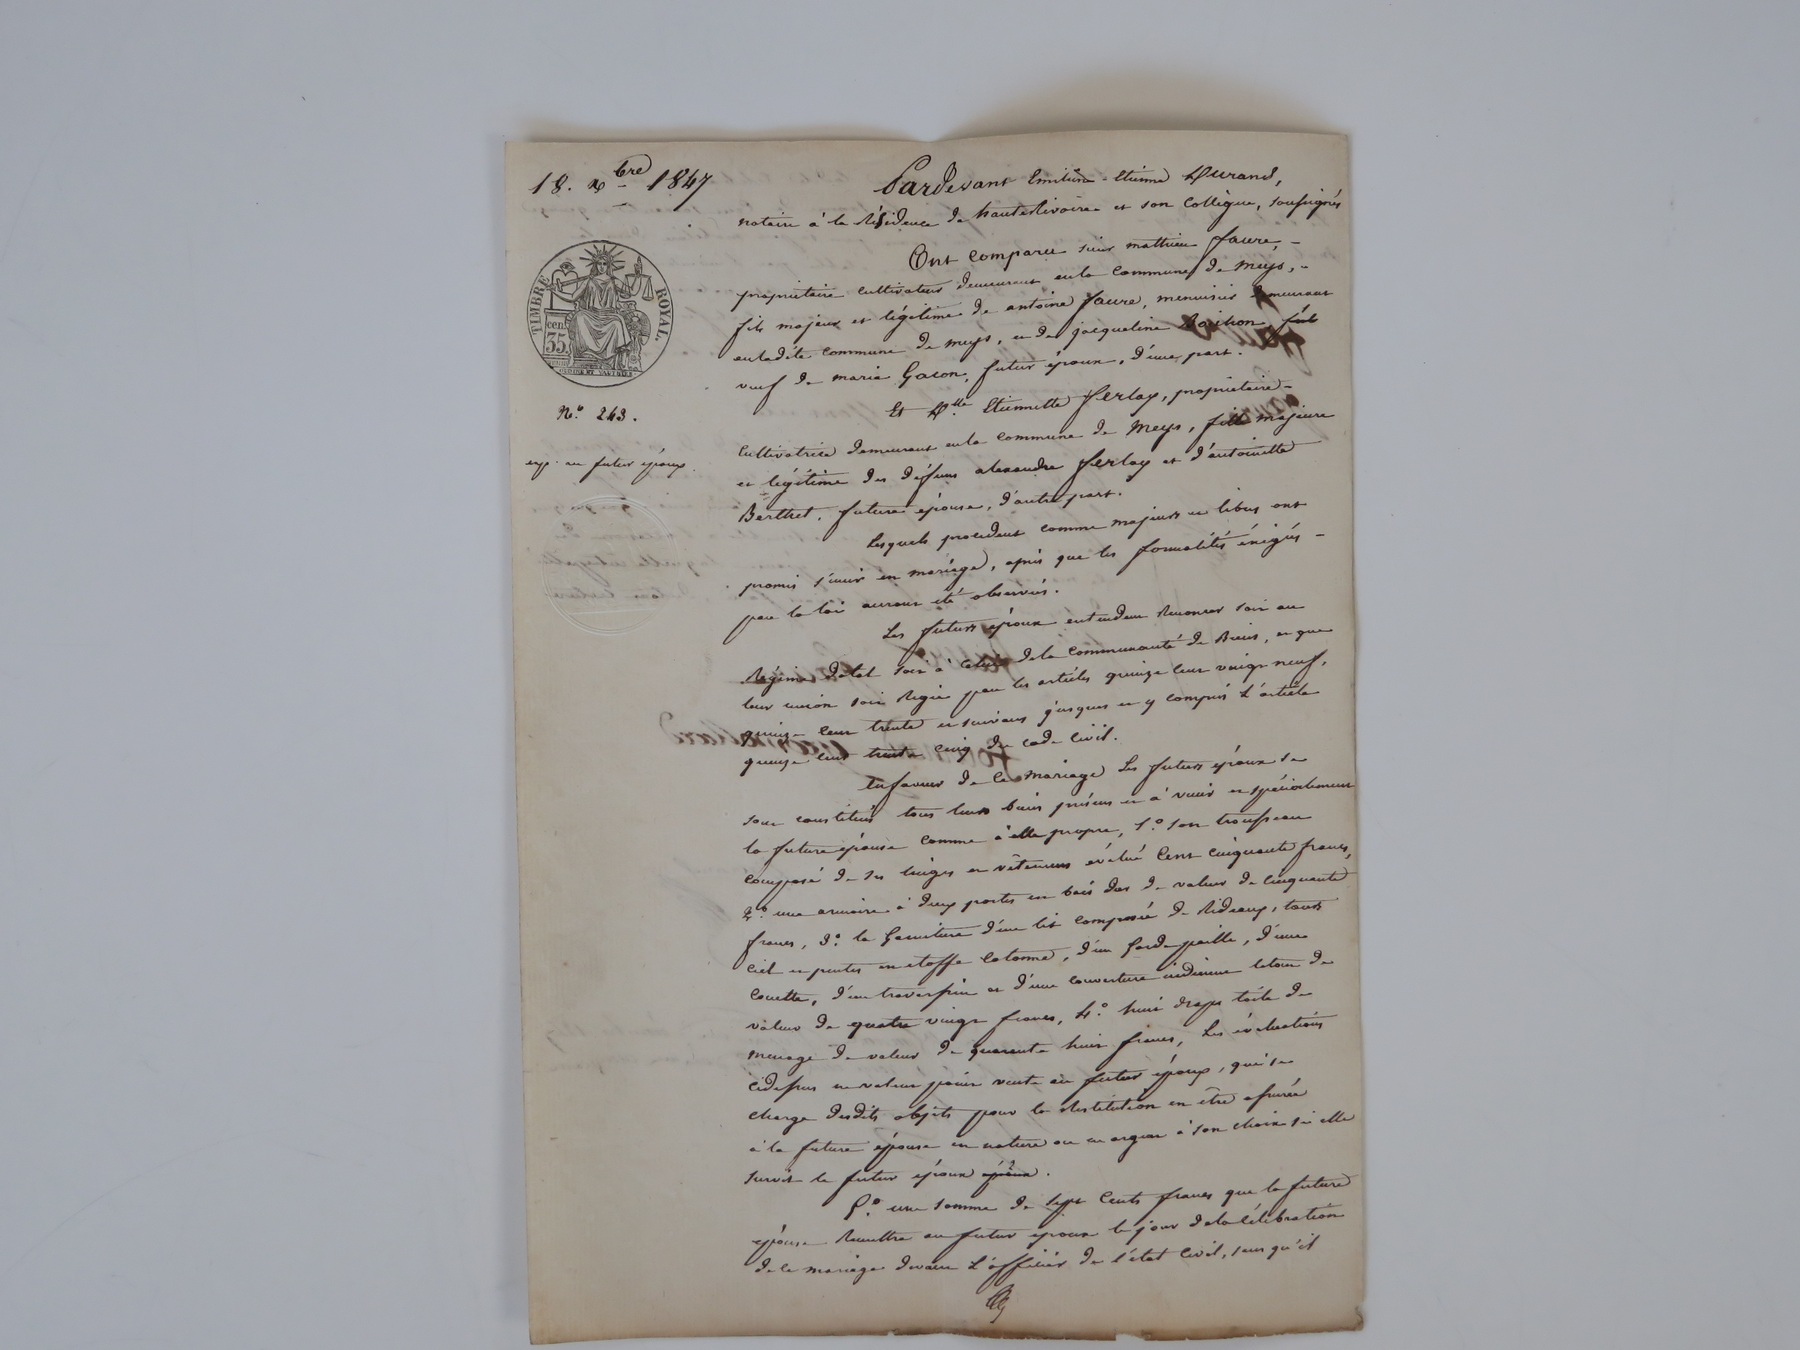 18. Nbre 1847
TIMBRE ROYAL.
cen. 35.
N.o 243.
exp. au futur époux.
Pardevant Emilien-Etienne Durand,
notaire à la Résidence de hauterivoire et son Collègue, soussignés
Ont comparu sieur mathieu faure,
propriétaire cultivateur demeurant en la commune de meys,
fils majeur et légitime de antoine faure, menuisier demeurant
en ladite commune de meys, et de jacqueline
veuf de marie Gacon, futur époux, d'une part.
Et Dlle Etiennette ferlay, propriétaire
cultivatrice demeurant en la commune de Meys, fille majeure
et légitime des défunts alexandre ferlay et d'antoinette
Berthet, future épouse, d'autre part.
Lesquels procédant comme majeurs et libres ont
promis s'unir en mariage, après que les formalités éxigées
par la loi auront été observées.
Les futurs époux entendent Renoncer soit au
Régime dotal soit à celui de la communauté de Biens, et que
leur union soit Régie par les articles quinze cent vingt neuf,
quinze cent trente et suivans jusques et y compris L'article
quinze cent trente cinq du code Civil.
En faveur de ce mariage Les futurs époux se
sont constitués tous leurs biens présens et à venir et spécialement
la future épouse comme à elle propre, 1.o son trousseau
composé de ses linges et vêtemens évalué Cent cinquante francs,
2.o une armoire à deux portes en bois dur de valeur de cinquante
francs, 3.o la Garniture d'un lit composée de Rideaux, tours
ciel et pentes en étoffe cotonne, d'un garde paille, d'une
couette, d'un traversin et d'une couverture indienne coton de
valeur de quatre vingt francs, 4.o huit draps toile de
menage de valeur de quarante huit francs, Les évaluations
cidessus ne valent point vente au futur époux, qui se
charge desdits objets pour la Restitution en être assurée
à la future épouse en nature ou en argent à son choix si elle
survit le futur époux époux.
5.o une somme de sept Cents francs que la future
épouse Remettra au futur époux le jour de la Célébration
de ce mariage devant L'officier de l'état Civil, sans qu'il